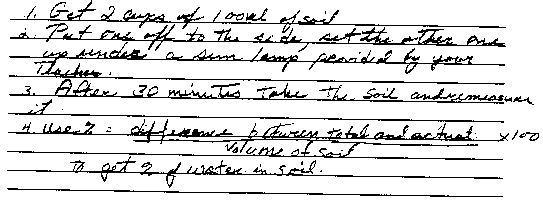 1. Get 2 cups of 100ml of soil
2. Put one off to the side, set the other one
up under a sun lamp provided by your
Teacher.
3. After 30 minutes take the soil and remeasure
it.
4. Use % = difference between total and actual x100
volume of soil
to get % of water in soil.